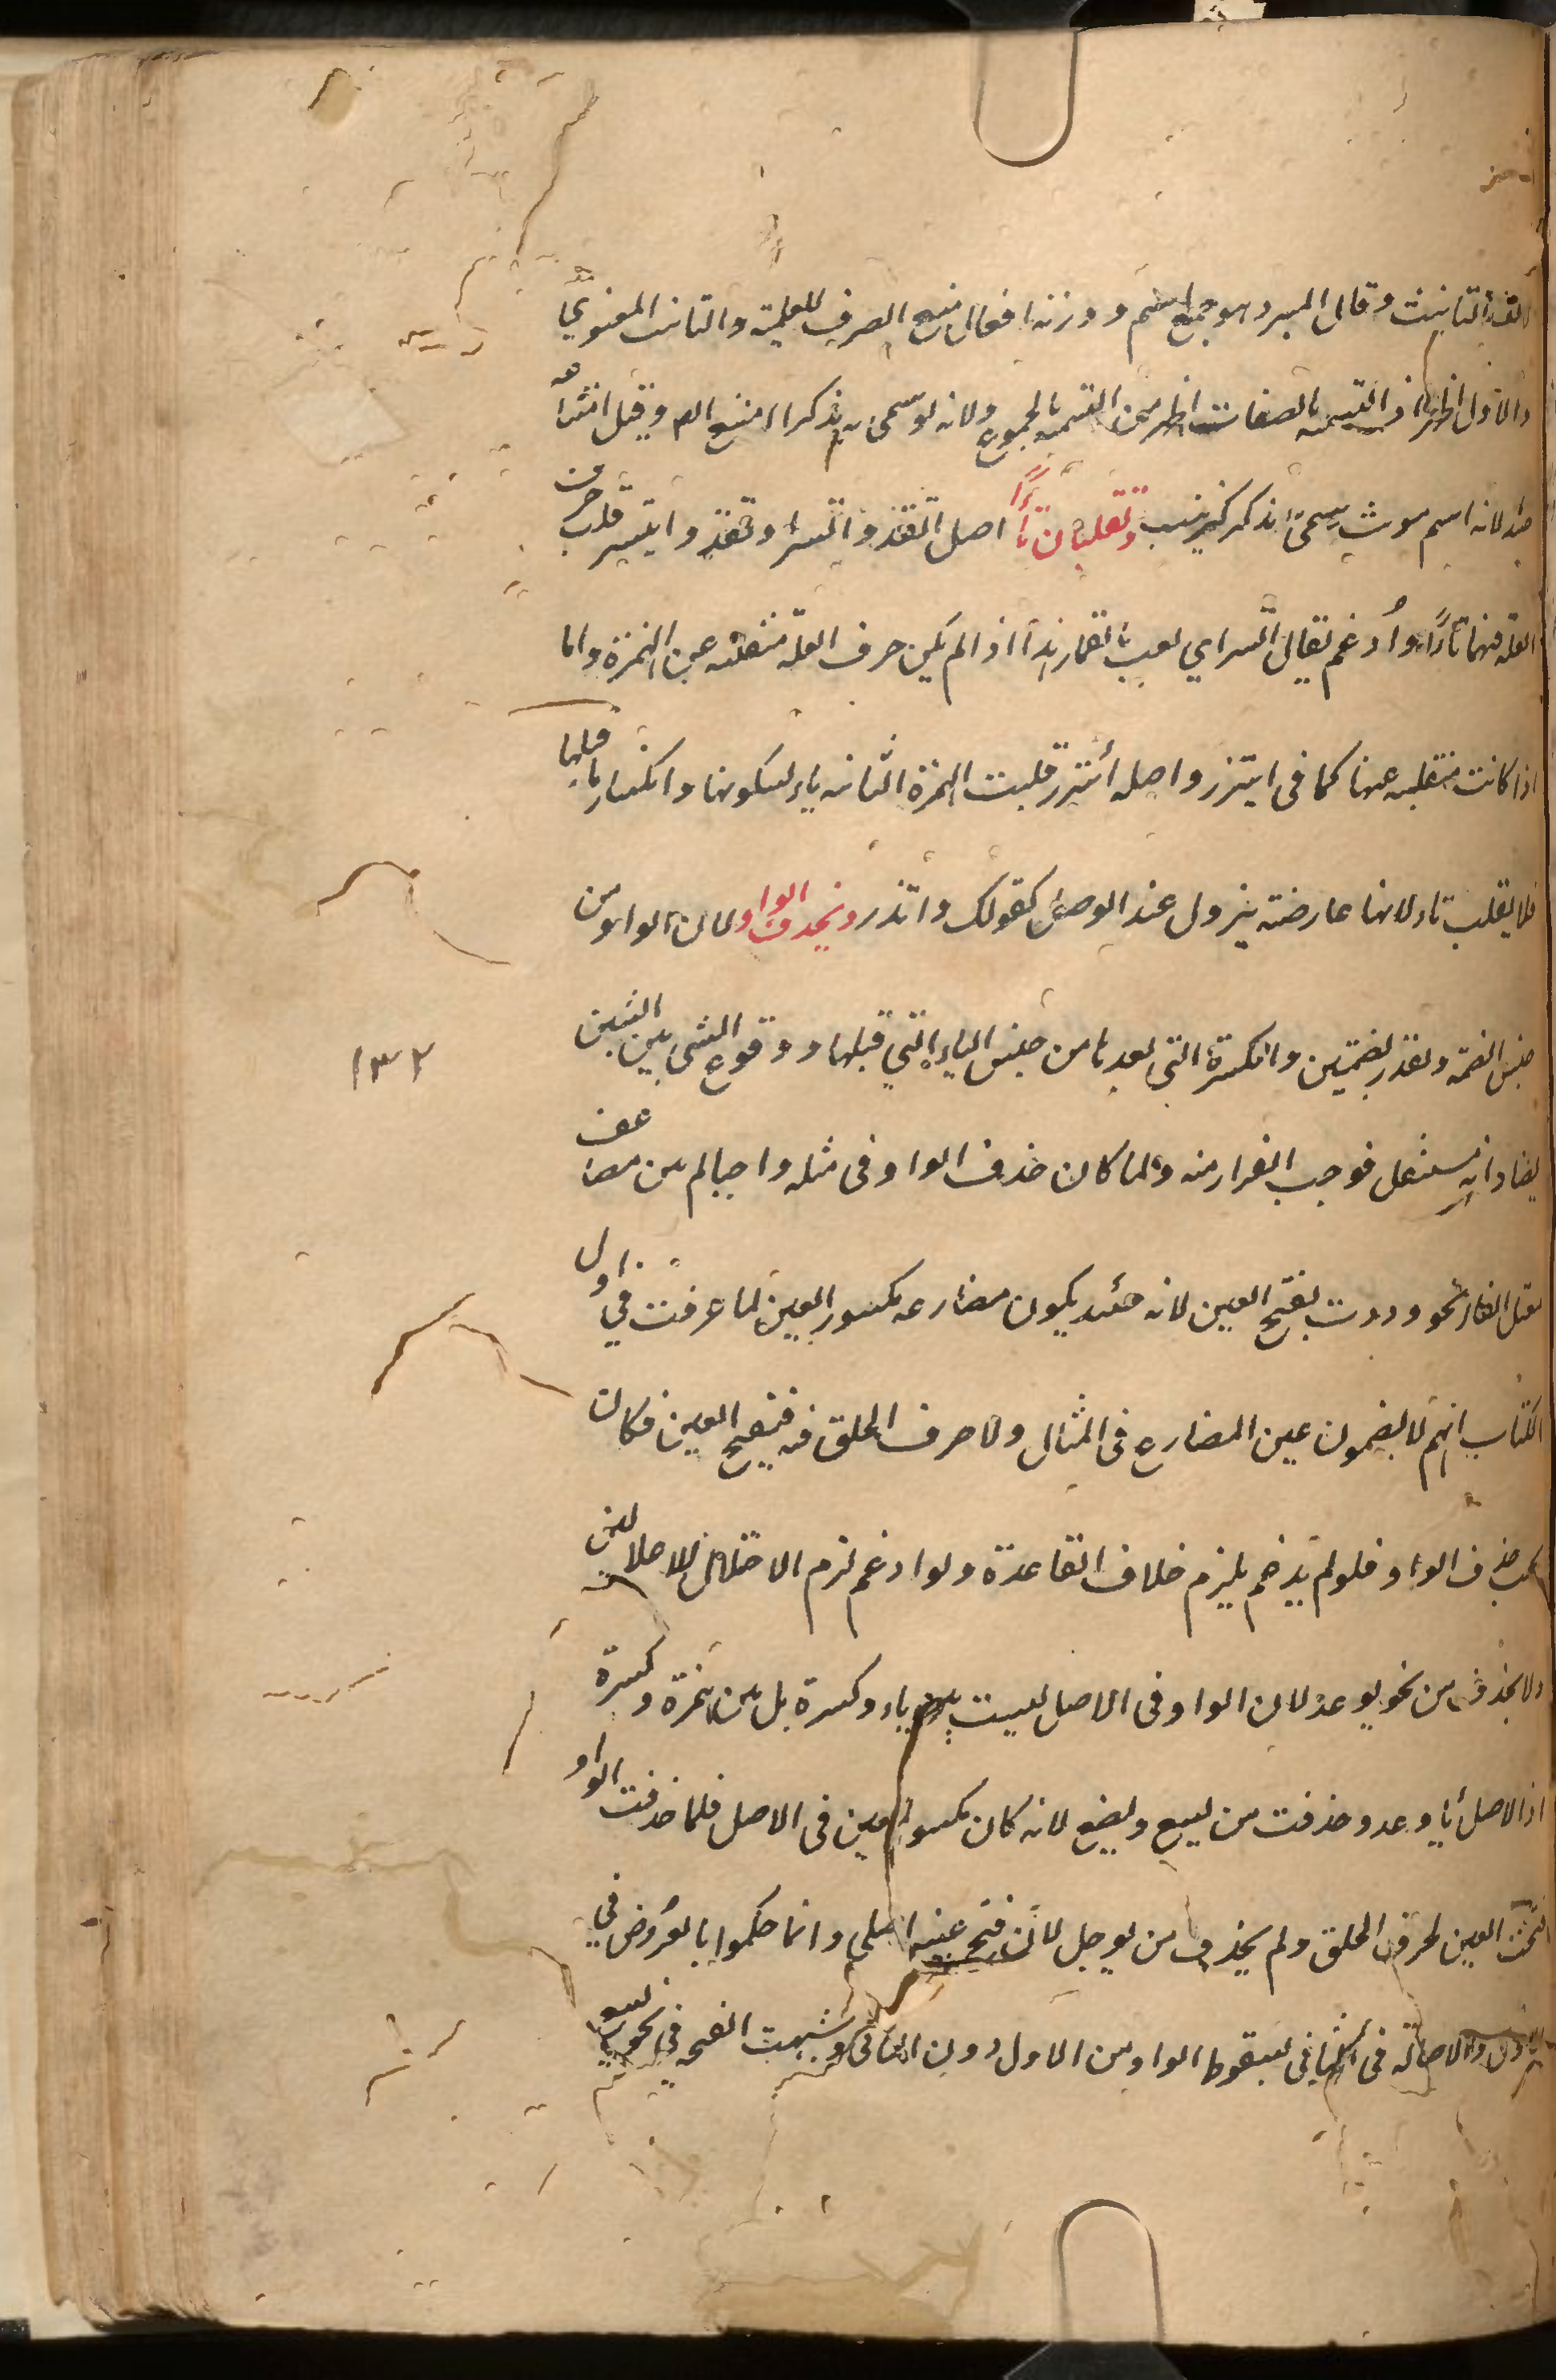 لالف التانيث وقال المبرد هو جمع اسم ووزنه افعال منع الصرف للعلمية والتانيث المعنوي
والاول اظهر اذ التسمية بالصفات اظهر من التسمية بالجموع ولانه لو سمى به مذكرا امتنع الص وقيل امتناعه
ايضا لانه اسم مونث يسمى به مذكر كزينب وتقلبان تاءً اصل اتقد واتسر اوتقد وايتسر قلب حرف
العلة فيهما تاءً وأدغم يقال اتسر اي لعب بالقمار هذا اذا لم يكن حرف العلة منقلبة عن الهمزة واما
اذا كانت منقلبة عنها كما فى ايتزر واصله أئتزر قلبت الهمزة الثانية ياء لسكونها وانكسار ما قبلها
فلا يقلب تاء لانها عارضة يزول عند الوصل كقولك واتذر ويحذف الواو لان الواو من
جنس الضمة وتقدر بضمتين والكسرة التي بعدها من جنس الياء التي قبلها ووقوع الشى بين الشيئين
يضادانه مستثقل فوجب الفرار منه ولما كان حذف الواو فى مثله واجبا لم يبن مضاعف
معتل الفاء نحو وددت بفتح العين لانه حينئذ يكون مضارعه مكسور العين لما عرفت في اول
الكتاب انهم لا يضمون عين المضارع فى المثال ولا حرف الحلق فيه فيفتح العين فكان
يجب حذف الواو فلو لم يدغم يلزم خلاف القاعدة ولو ادغم لزم الاختلال للاعلالين
ولا يحذف من نحو يوعد لان الواو فى الاصل ليست بين ياء وكسرة بل بين همزة وكسرة
اذ الاصل يأوعد وحذفت من يسع ويضع لانه كان مكسور العين فى الاصل فلما حذفت الواو
فتحت العين لحرف الحلق ولم يحذف من يوجل لان فتح عينه اصلي وانما حكموا بالعروض في
الاول والاصالة فى الثانى لسقوط الواو من الاول دون الثانى وشبهت الفتحة في نحو يسع
١٣٢